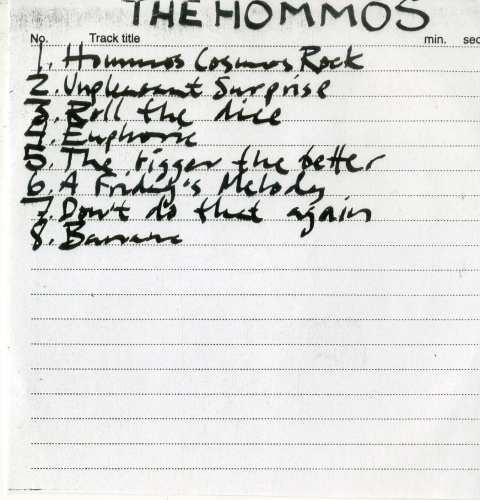 THE HOMMOS
No. Track title min. sec
1. Hommos Cosmos Rock
2. Unpleasant Surprise
3. Roll the dice
4. Euphorie
5. The bigger the better
6. A Friday's Melody
7. Don't do that again
8. Banane